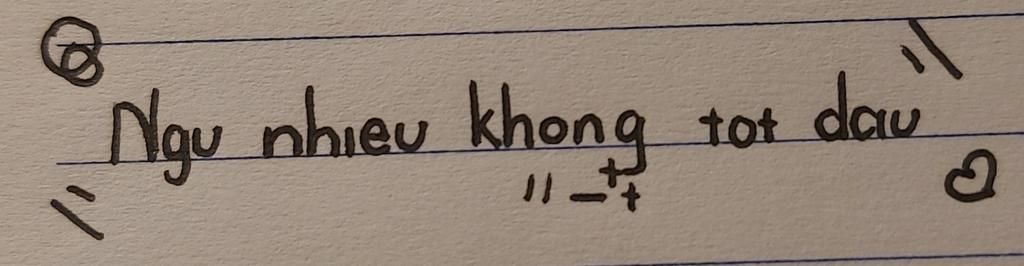 Ngu nhieu khong tot dau